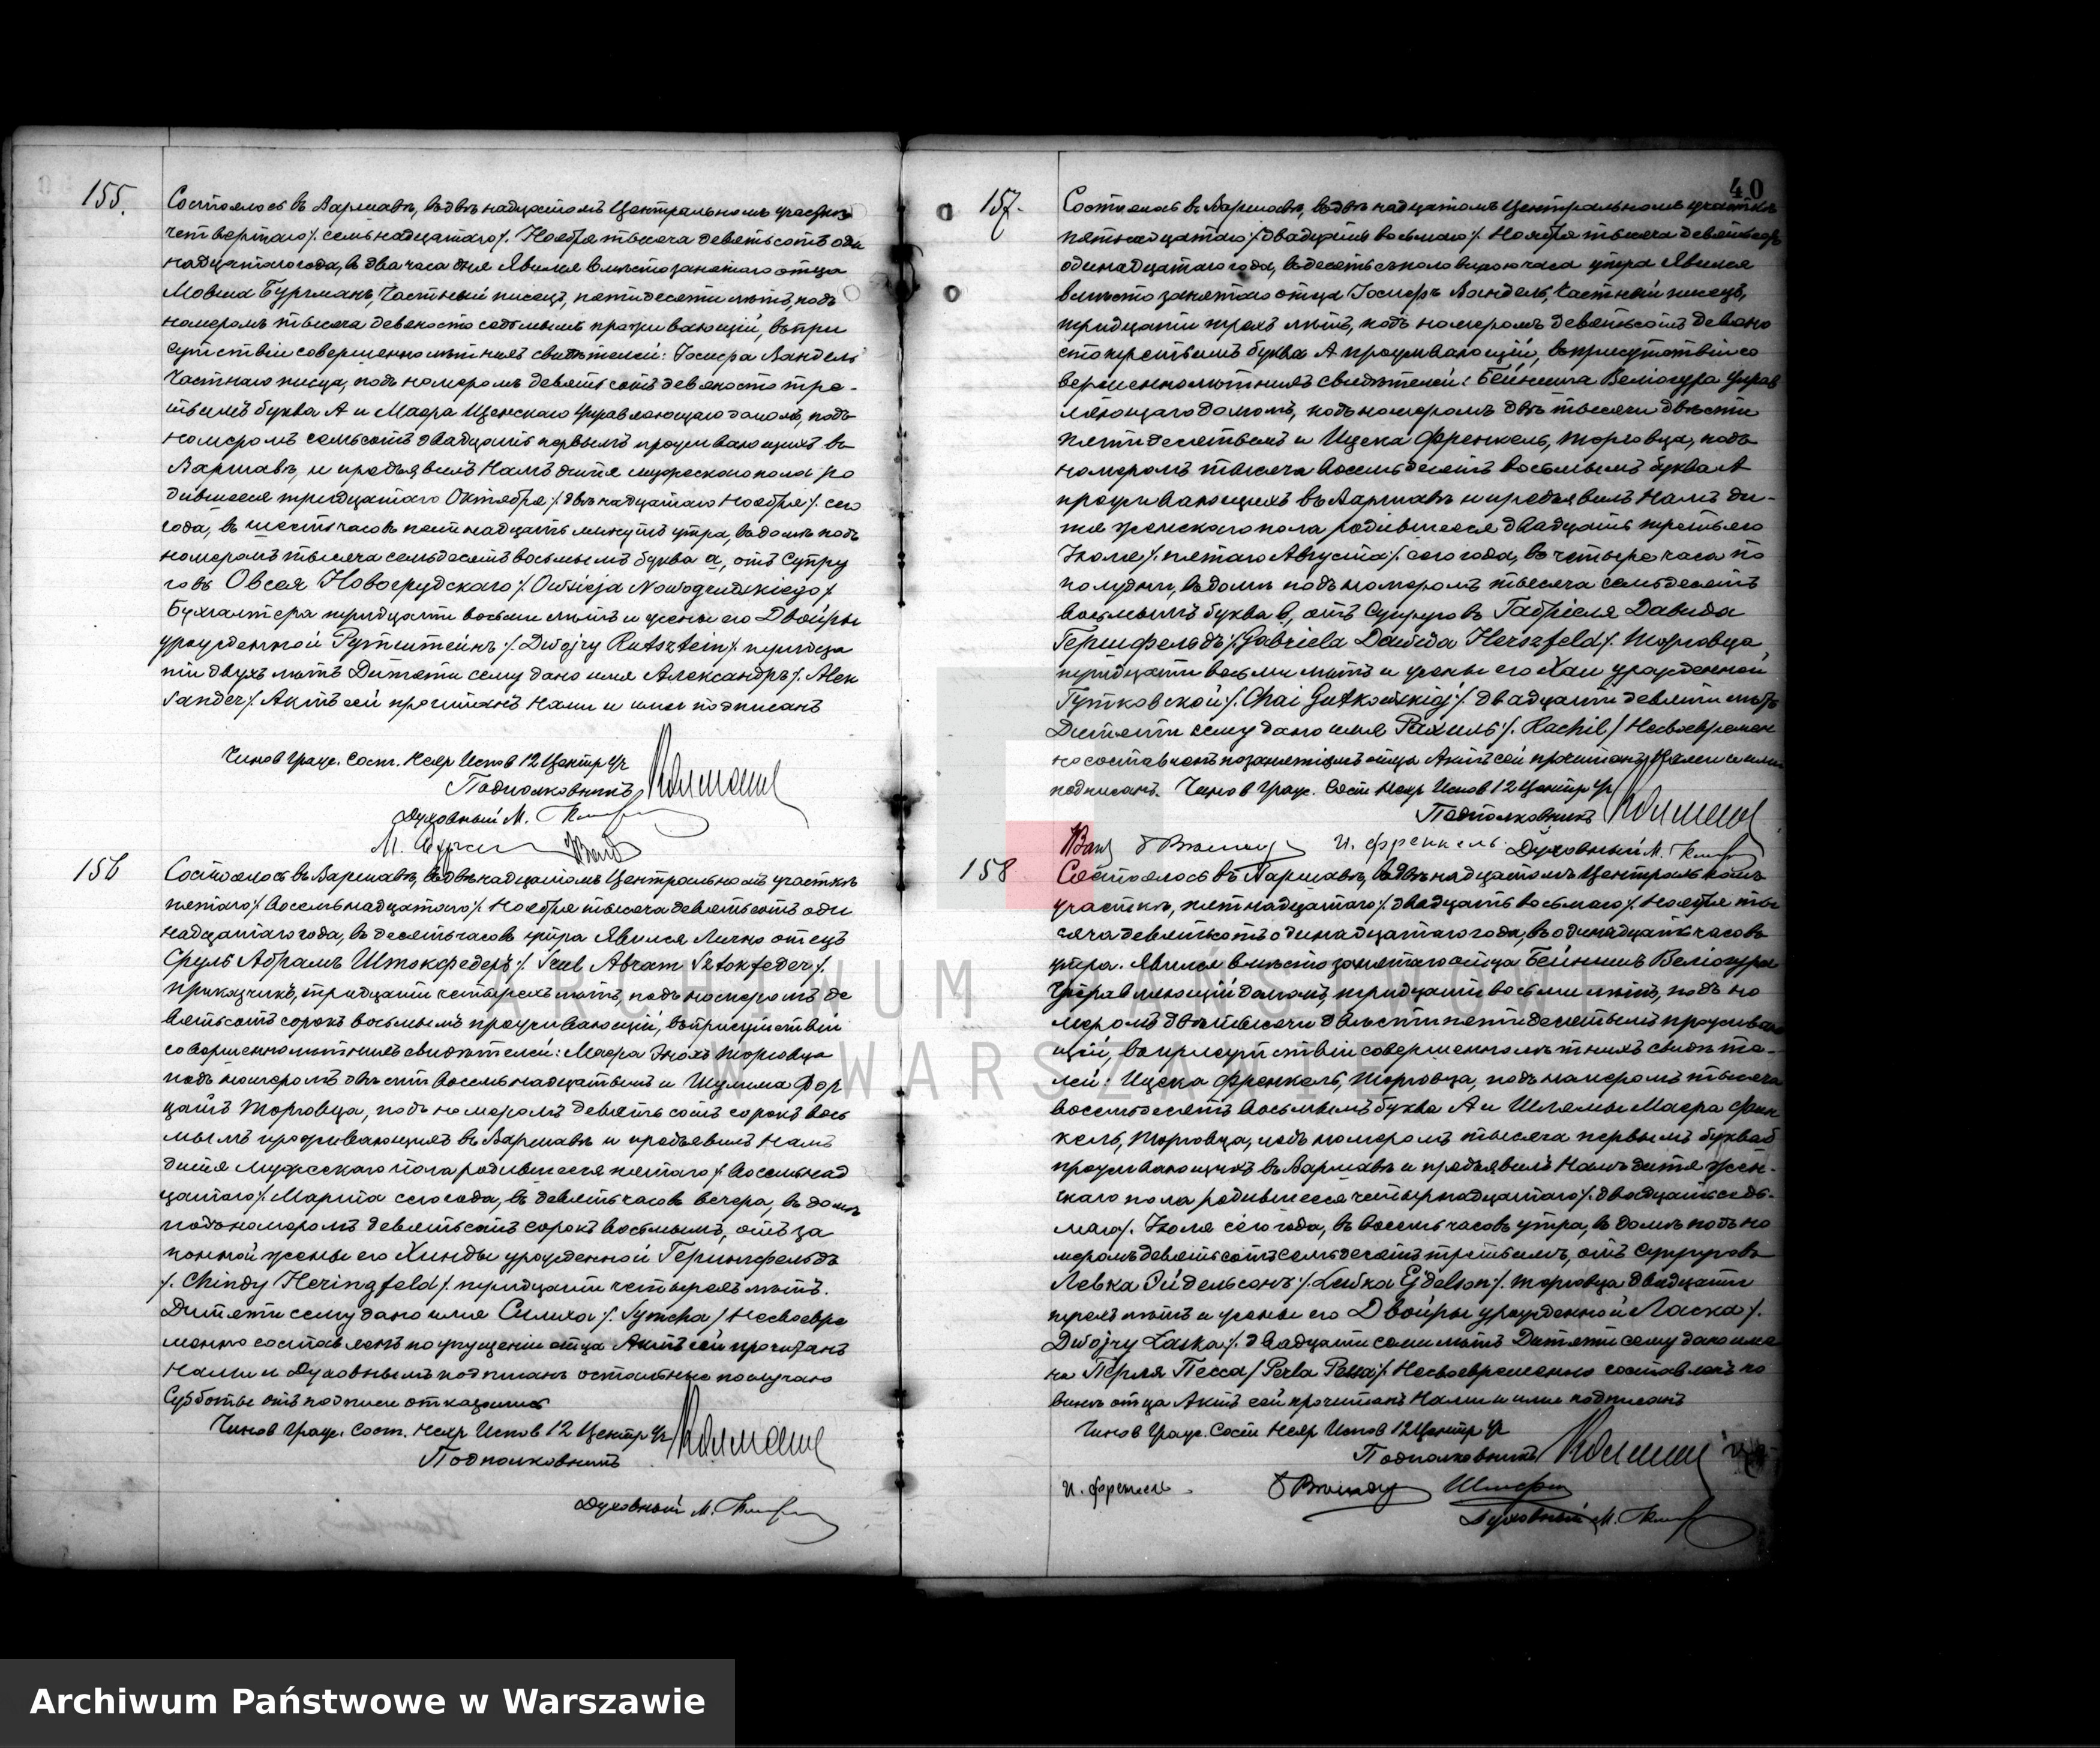 155.
Состоялось въ Варшавѣ, въ двѣнадцатомъ Центральномъ участкѣ
четвертаго /. семнадцатаго /. Ноября тысяча девятьсотъ оди
надцатаго года, въ два часа дня Явился вмѣсто занятаго отца
Мовша Бургманъ, Частный писецъ, пятидесяти лѣтъ, подъ
номеромъ тысяча девяносто седьмымъ проживающій, въ при
сутствіи совершеннолѣтнихъ свидѣтелей: Іосифа Вандель
Частнаго писца, подъ номеромъ девятьсотъ девяносто тре-
тьимъ буква А и Маера Щенскаго Управляющаго домомъ, подъ
номеромъ семьсотъ двадцать первымъ проживающихъ въ
Варшавѣ, и предъявилъ Намъ дитя мужескаго пола ро
дившееся тридцатаго Октября /. двѣнадцатаго Ноября /. сего
года, въ шесть часовъ пятнадцать минутъ утра, въ домѣ подъ
номеромъ тысяча семьдесятъ восьмымъ буква а, отъ Супру
говъ Овсея Новогрудскаго /. Owsieja Nowogrudskiego /.
Бухгалтера тридцати восьми лѣтъ и жены его Двойры
урожденной Рутштейнъ /. Dwojry Rutsztein /. тридца
ти двухъ лѣтъ Дитяти сему дано имя Александръ /. Alek
sander /. Актъ сей прочитанъ Нами и ими подписанъ
Чинов Гражд. Сост. Нехр Испов 12 Центр Уч
Подполковникъ
Духовный М.
156
Состоялось въ Варшавѣ, въ двѣнадцатомъ Центральномъ участкѣ
пятаго /. восемнадцатаго /. Ноября тысяча девятьсотъ оди
надцатаго года, въ десять часовъ утра Явился Лично отецъ
Сруль Абрамъ Штокфедеръ /. Srul Abram Sztokfeder /.
приказчикъ, тридцати четырехъ лѣтъ, подъ номеромъ де
вятьсотъ сорокъ восьмымъ проживающій, въ присутствіи
совершеннолѣтнихъ свидѣтелей: Маера Энохъ Торговца
подъ номеромъ двѣсти восемнадцатымъ и Шулима Фор
цайгъ Торговца, подъ номеромъ девятьсотъ сорокъ вось
мымъ проживающихъ въ Варшавѣ и предъявилъ Намъ
дитя мужескаго пола родившееся пятаго /. восемнад
цатаго /. Марта сего года, въ девять часовъ вечера, въ домѣ
подъ номеромъ девятьсотъ сорокъ восьмымъ, отъ за
конной жены его Хинды урожденной Герингфельдъ
/. Chindy Heringfeld /. тридцати четырехъ лѣтъ.
Дитяти сему дано имя Симха /. Symcha / Несвоевре
менно составленъ по упущенію отца Актъ сей прочитанъ
Нами и Духовнымъ подписанъ остальные по случаю
Субботы отъ подписи отказались
Чинов Гражд. Сост. Нехр Испов 12 Центр Уч
Подполковникъ
Духовный М.
40
157.
Состоялось въ Варшавѣ, въ двѣнадцатомъ Центральномъ участкѣ
пятнадцатаго /. двадцать восьмаго /. Ноября тысяча девятьсотъ
одинадцатаго года, въ десять съ половиною часа утра Явился
вмѣсто занятаго отца Іосифъ Вандель, Частный писецъ,
тридцати трехъ лѣтъ, подъ номеромъ девятьсотъ девяно
сто третьимъ буква А проживающій, въ присутствіи со
вершеннолѣтнихъ свидѣтелей: Бейниша Веліогура Управ
ляющаго домомъ, подъ номеромъ двѣ тысячи двѣсти
пятидесятымъ и Ицека Френкель, Торговца, подъ
номеромъ тысяча восемьдесятъ восьмымъ буква А
проживающихъ въ Варшавѣ и предъявилъ Намъ ди-
тя женскаго пола родившееся двадцать третьяго
Іюля /. пятаго Августа /. сего года, въ четыре часа по
полудни, въ домѣ подъ номеромъ тысяча семьдесятъ
восьмымъ буква в, отъ Супруговъ Габріеля Давида
Гершфельдъ /. Gabriela Dawida Herszfeld /. Торговца,
тридцати восьми лѣтъ и жены его Хаи урожденной
Гутковской /. Chai Gutkowskiej /. двадцати девяти лѣтъ
Дитяти сему дано имя Рахиль /. Rachil / Несвоевремен
но составленъ по занятіямъ отца Актъ сей прочитанъ Нами и ими
подписанъ. Чинов Гражд. Сост Нехр Испов 12 Центр Уч
Подполковникъ
И. Френкель Духовный М.
158
Состоялось въ Варшавѣ, въ двѣнадцатомъ Центральномъ
участкѣ, пятнадцатаго /. двадцать восьмаго /. Ноября ты
сяча девятьсотъ одинадцатаго года, въ одинадцать часовъ
утра. Явился вмѣсто занятаго отца Бейнишъ Веліогура
Управляющій домомъ, тридцати восьми лѣтъ, подъ но
меромъ двѣ тысячи двѣсти пятидесятымъ проживаю
щій, въ присутствіи совершеннолѣтнихъ свидѣте-
лей: Ицека Френкель, Торговца, подъ номеромъ тысяча
восемьдесятъ восьмымъ буква А и Шлемы Маера
кель, Торговца, подъ номеромъ тысяча первымъ буква
проживающихъ въ Варшавѣ и предъявилъ Намъ дитя жен-
скаго пола родившееся четырнадцатаго /. двадцать седь-
маго /. Іюля сего года, въ восемь часовъ утра, въ домѣ подъ но
меромъ девятьсотъ семьдесятъ третьимъ, отъ Супруговъ
Левка Эйдельсонъ /. Lewka Ejdelson /. Торговца двадцати
трехъ лѣтъ и жены его Двойры урожденной Ласка /.
Dwojry Łaska /. двадцати семи лѣтъ Дитяти сему дано име
на Перля Песса / Perla Pessa / Несвоевременно составленъ по
винѣ отца Актъ сей прочитанъ Нами и ими подписанъ
Чинов Гражд. Сост Нехр Испов 12 Центр Уч
Подполковникъ
И. Френкель
Духовный М.
ARCHIWUM PAŃSTWOWE
W WARSZAWIE
Archiwum Państwowe w Warszawie